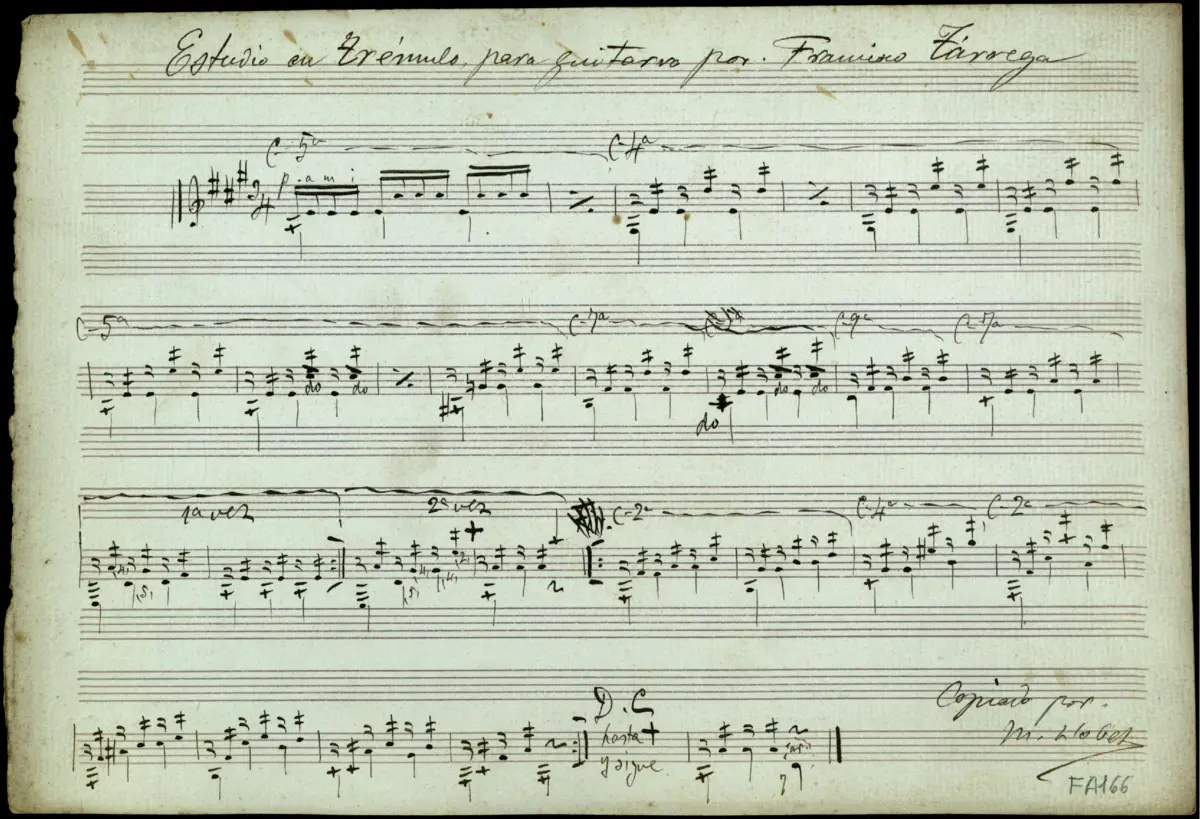 Estudio en Trémulo, para guitarra por. Francisco Tárrega
C-5ª C-4ª
p a m i
3 4
C-5ª C-7ª C-9ª C-7ª
do do do do
do
1ª vez 2ª vez C-2ª C-4ª C-2ª
(4) (4) (2)
(5) (5) (4)
D.C. Copiado por.
hasta M. Llobet
y sigue
FA166